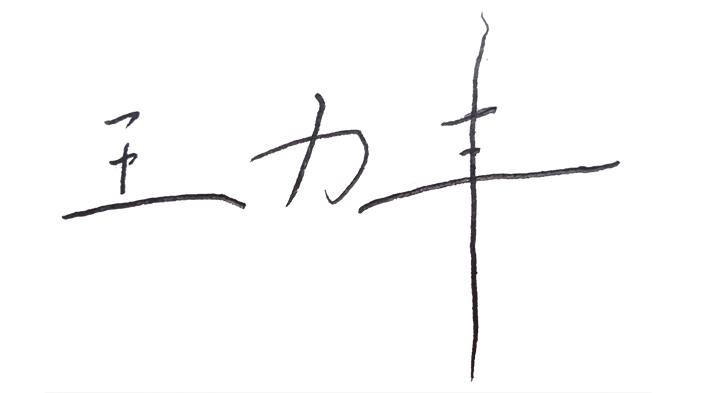 王力丰